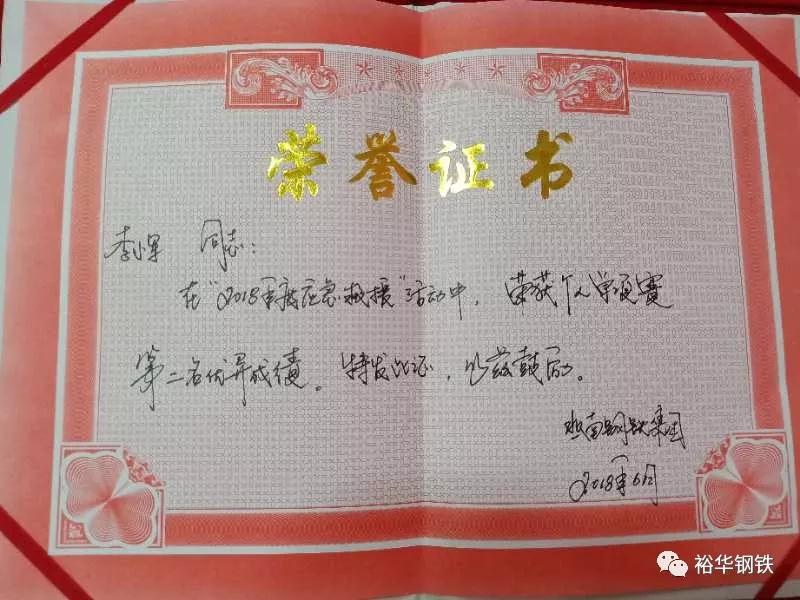 荣誉证书
同志：
在“2018年度应急救援”活动中，荣获个人单项赛
第二名优异成绩。特发此证，以兹鼓励。
钢铁集团
2018年6月
裕华钢铁